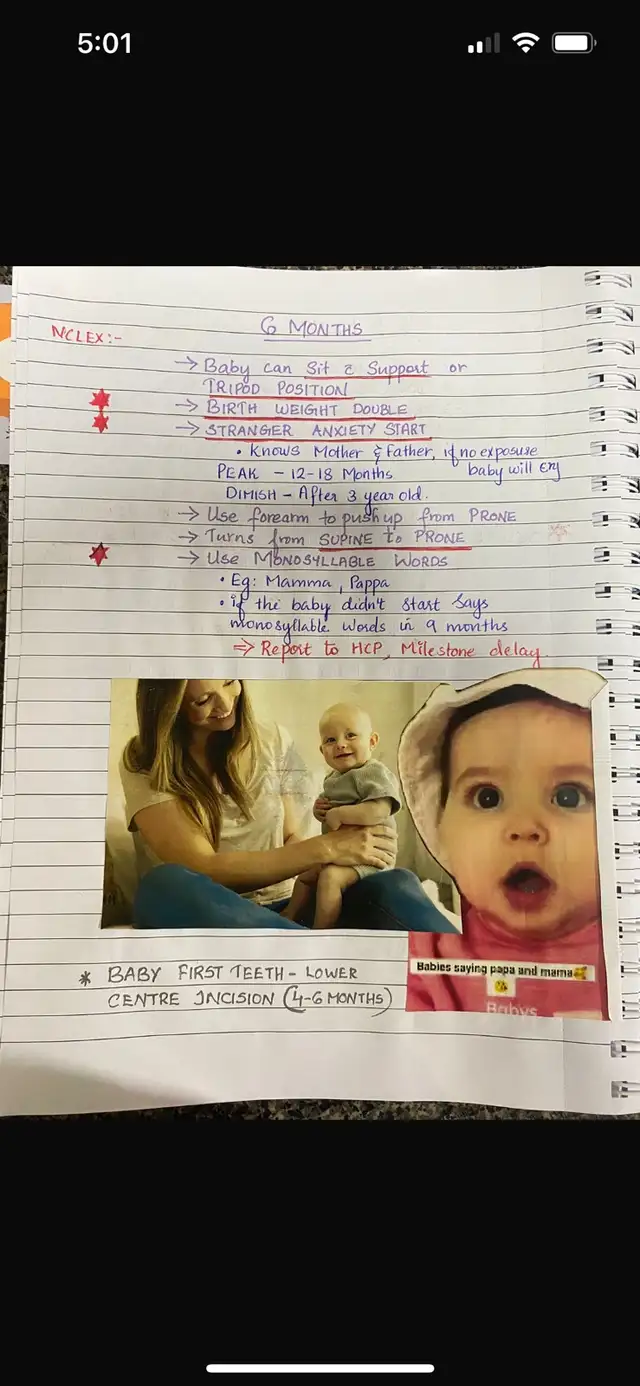 5:01
6 MONTHS
NCLEX:-
→ Baby can Sit c̄ Support or
TRIPOD POSITION
→ BIRTH WEIGHT DOUBLE
→ STRANGER ANXIETY START
• Knows Mother & Father, if no exposure
baby will cry
PEAK - 12-18 Months
DIMISH - After 3 year old.
→ Use forearm to push up from PRONE
→ Turns from SUPINE to PRONE
→ Use MONOSYLLABLE WORDS
• Eg: Mamma, Pappa
• if the baby didn't start says
monosyllable words in 9 months
⇒ Report to HCP, Milestone delay.
Babies saying papa and mama
Babys
* BABY FIRST TEETH - LOWER
CENTRE INCISION (4-6 MONTHS)